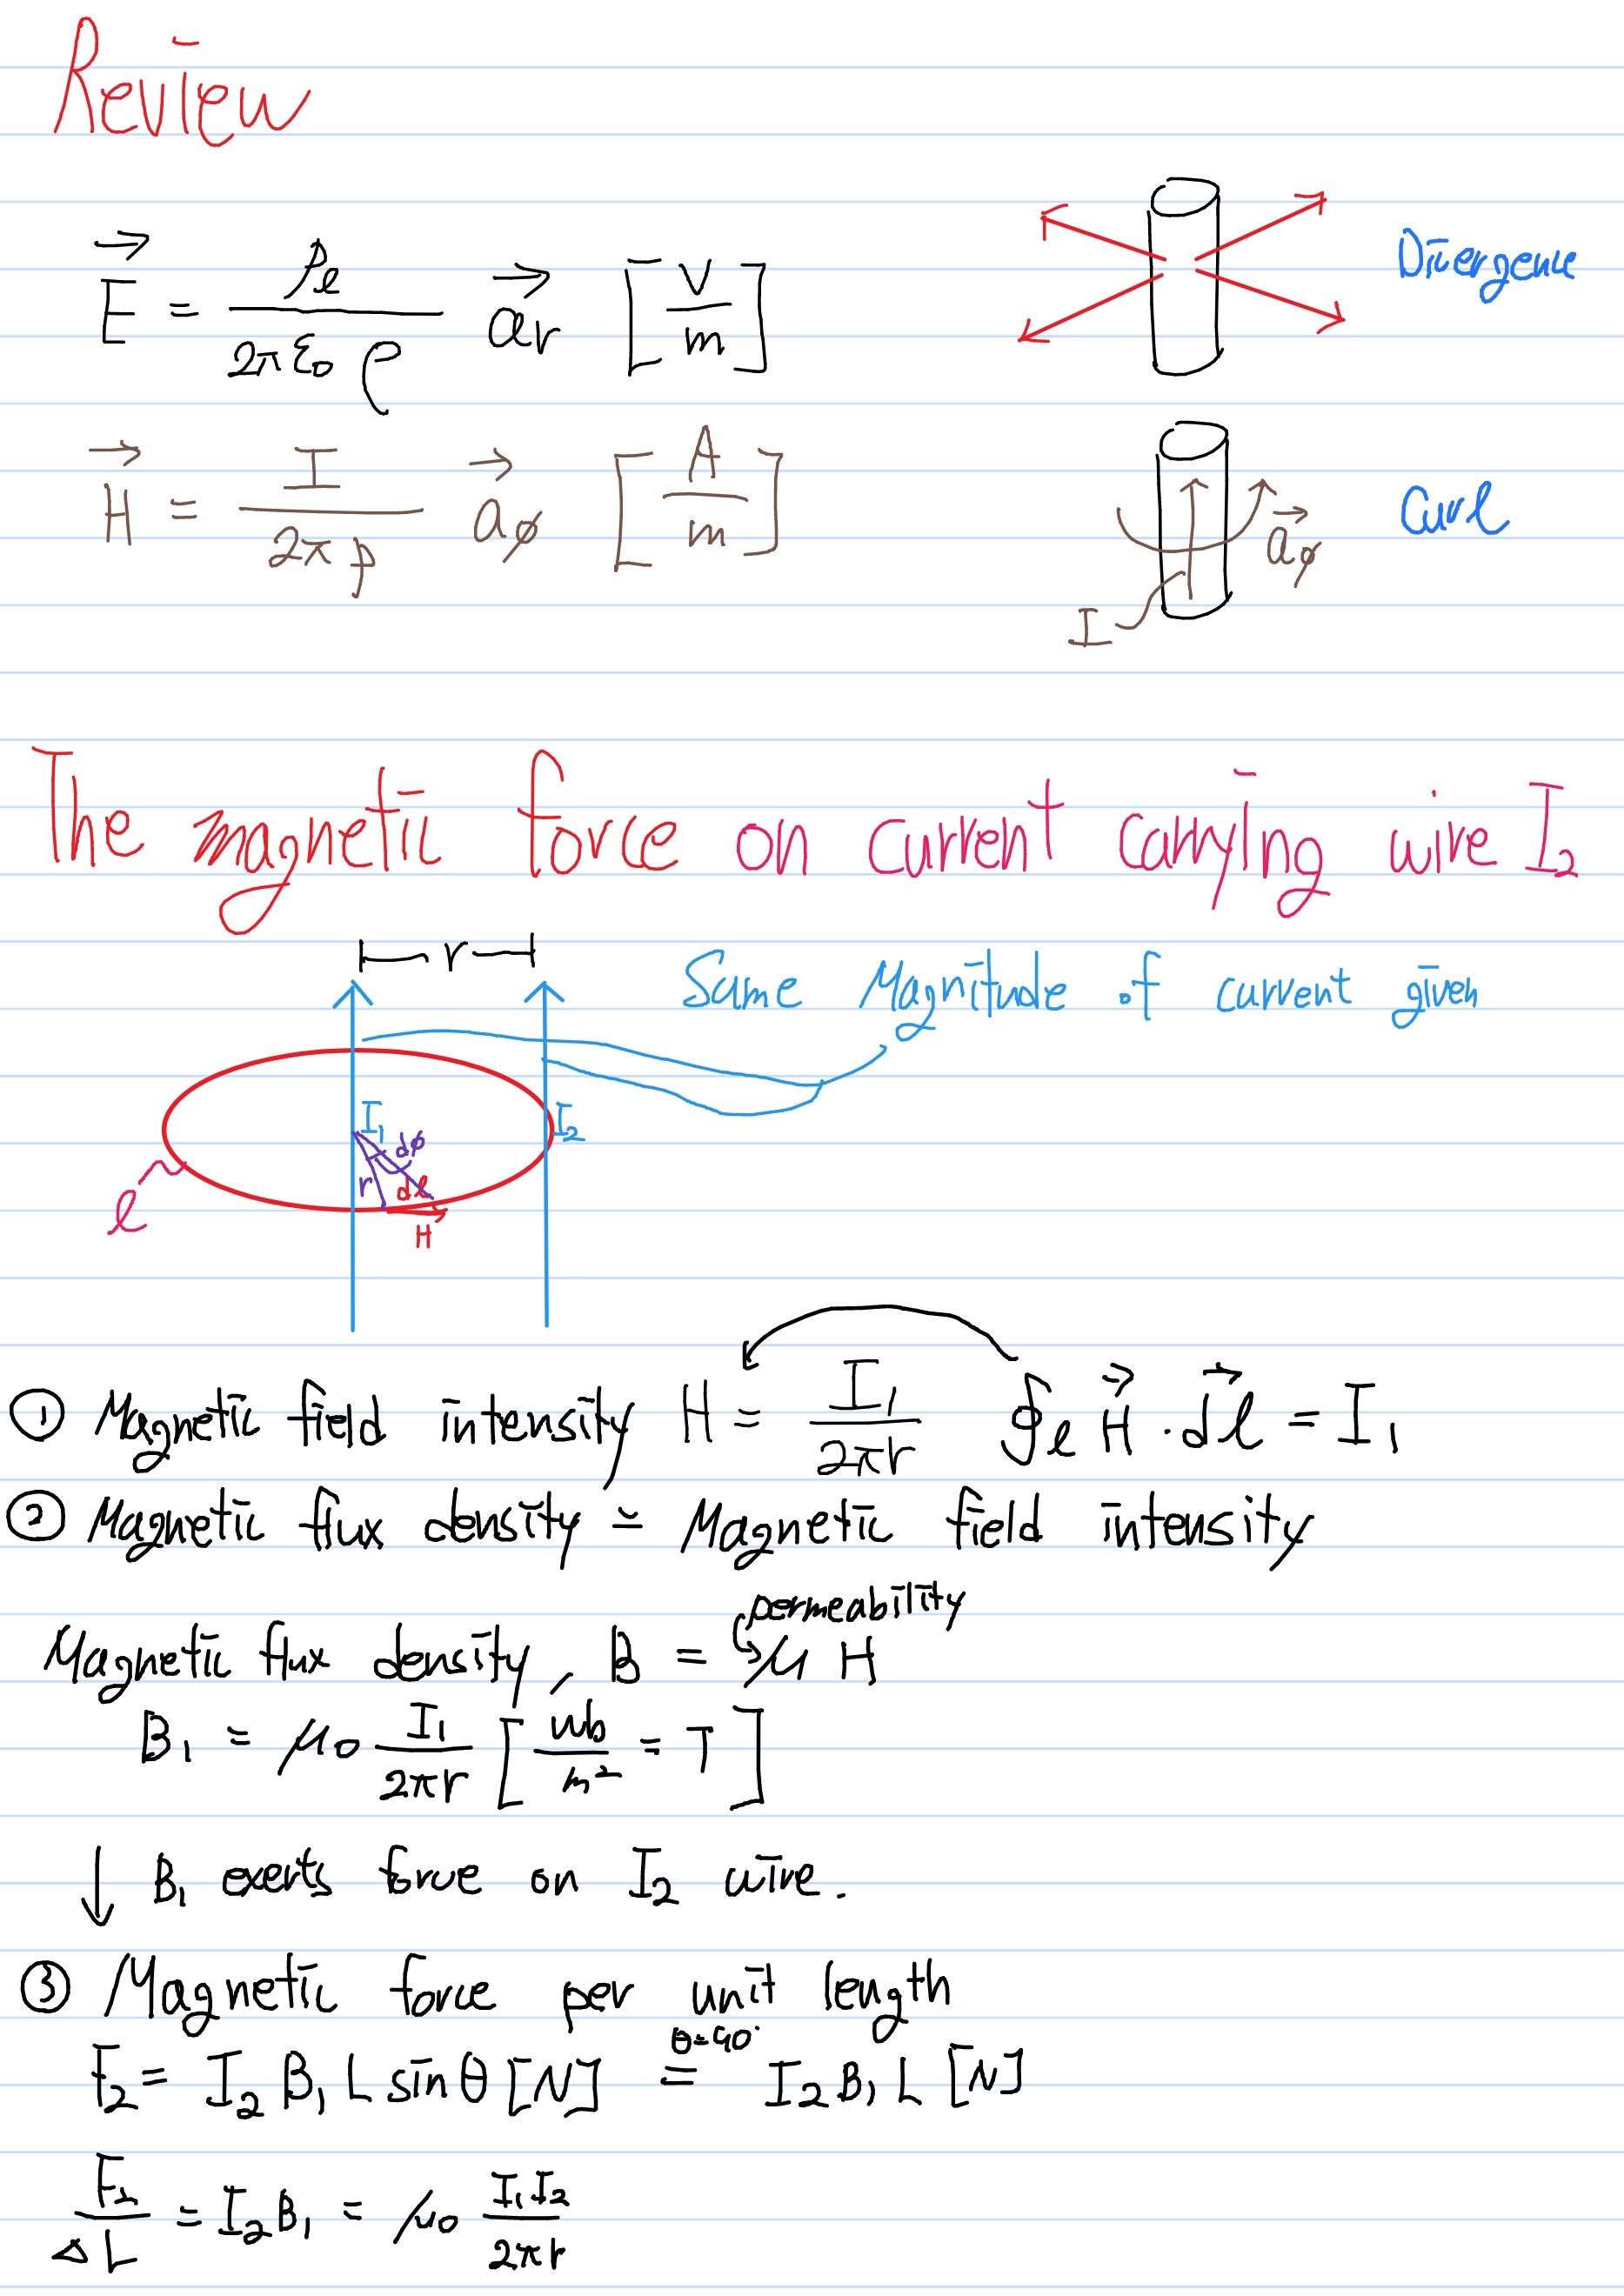 Review
E⃗ = ρℓ / 2π ε₀ ρ a⃗r [V/m]
Divergence
H⃗ = I / 2π ρ a⃗ø [A/m]
Curl
a⃗ø
I
The magnetic force on current carrying wire I₂
r
Same Magnitude of current given
I₁
I₂
dø
r
dℓ
ℓ
H
① Magnetic field intensity H = I₁ / 2πr ∮ℓ H⃗ · dℓ⃗ = I₁
② Magnetic flux density ≃ Magnetic field intensity
permeability
Magnetic flux density, B = μ H
B₁ = μ₀ I₁ / 2πr [wb / m² = T]
↓ B₁ exerts force on I₂ wire.
③ Magnetic force per unit length
θ=90°
F₂ = I₂ B₁ L sinθ [N] = I₂ B₁ L [N]
F₂ / ΔL = I₂B₁ = μ₀ I₁I₂ / 2πr